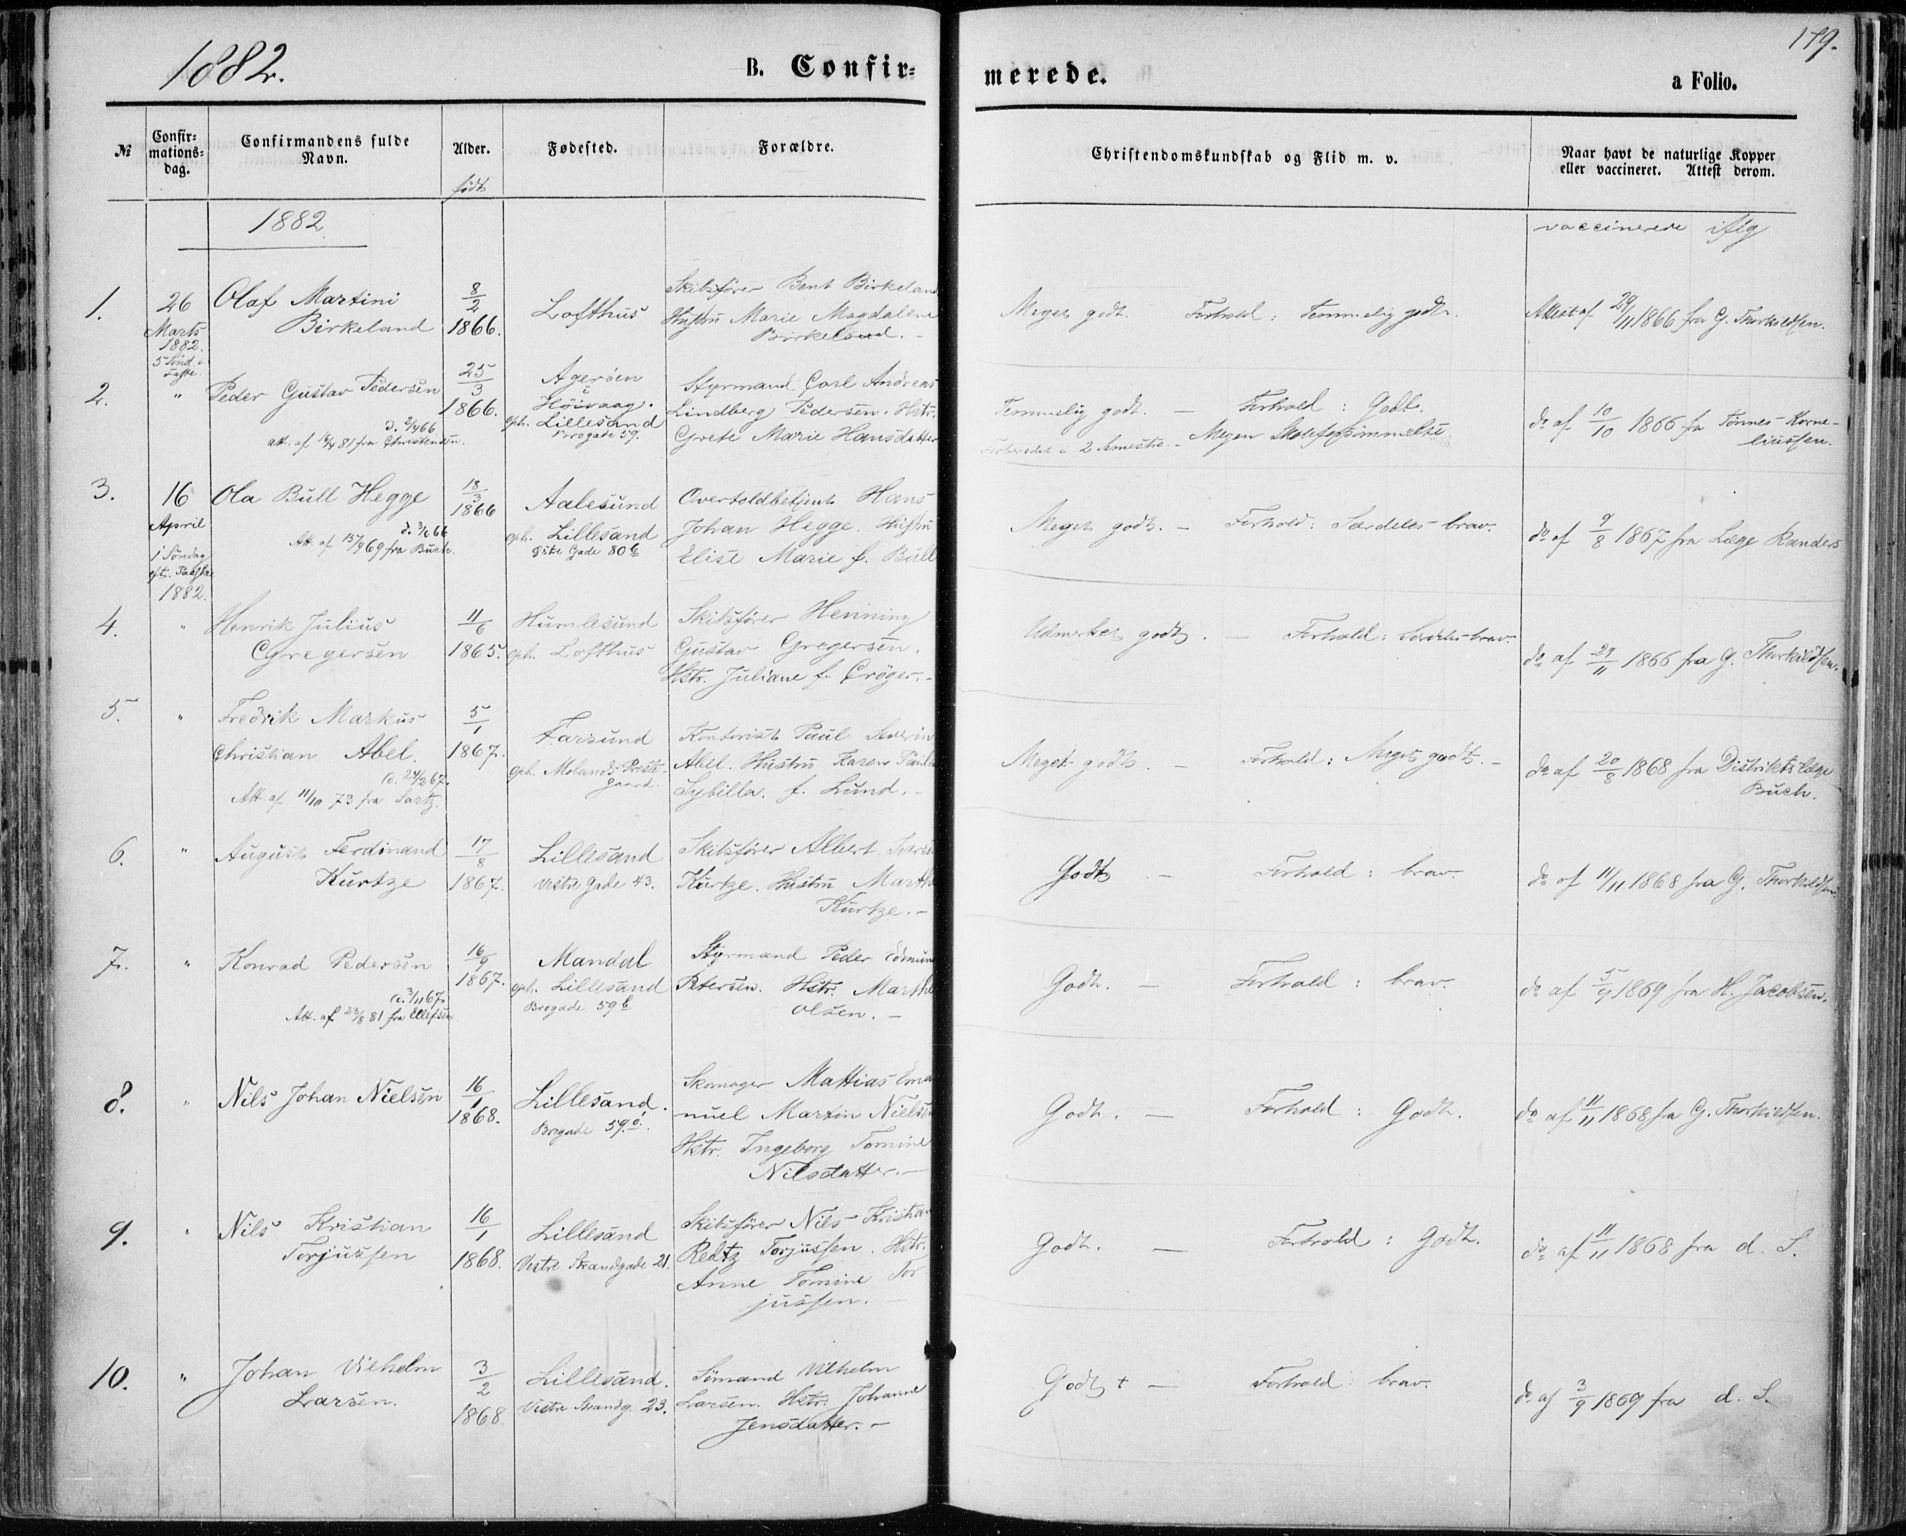 1882.
B. Confir=
merede.
179.
a Folio.
№
Confir=
mations=
dag.
Confirmandens fulde
Navn.
Alder.
født
Fødested.
Forældre.
Christendomskundskab og Flid m. v.
Naar havt de naturlige Kopper
eller vaccineret. Attest derom.
1882
vaccinerede iflg
1.
26
Marts
1882.
5 Sønd. i
Faste.
Olaf Martini
Birkeland
8/2
1866.
Lofthus
Skibsfører Bent Birkeland
Hustru Marie Magdalene
Birkeland. -
Meget godt. Forhold: Temmelig godt.
Attest af 29/11 1866 fra G. Thorkildsen.
2.
"
Peder Gustav Pedersen
d. 2/4 66
att. af 16/4 81 fra Christensen.
25/3
1866.
Agerøen
i
Høivaag.
oph. Lillesand
Brogade 59.
Styrmand Carl Andreas
Lindberg Pedersen. Hstr.
Grete Marie Hansdatter
Temmelig godt. — Forhold: Godt.
Forberedet i 2 Semestre. - Megen Skoleforsømmelse
do af 10/10 1866 fra Tønnes Korne-
liussen.
3.
16
April
1 Søndag
eft. Paaske
1882.
Ola Bull Hegge
d. 3/6 66
Att. af 15/9 69 fra Buch.
18/3
1866
Aalesund
oph. Lillesand
Østre Gade 80 b
Overtoldbetjent Hans
Johan Hegge. Hustru
Elise Marie f. Bull
Meget godt. — Forhold: Særdeles brav.
do af 9/8 1867 fra Læge Randers
4.
"
Henrik Julius
Gregersen
11/6
1865.
Humlesund
oph. Lofthus
Skibsfører Henning
Gustav Gregersen.
Hstr. Juliane f. Crøger. -
Udmerket godt. — Forhold: Særdeles brav.
do af 29/11 1866 fra G. Thorkildsen.
5.
"
Fredrik Markus
Christian Abel.
d. 24/2 67.
Att. af 11/10 73 fra Sartz.
5/1
1867.
Farsund
oph. Molands Preste-
gaard.
Kontorist Paul Severin
Abel. Hustru Karen Paul
Sybilla. f. Lund. -
Meget godt. — Forhold: Meget godt. -
do af 20/8 1868 fra Distriktslæge
Buch.
6.
"
August Ferdinand
Kurtze
17/8
1867.
Lillesand
Vestre Gade 43.
Skibsfører Albert
Kurtze. Hustru Marth
Kurtze. -
Godt — Forhold: brav.
do af 11/11 1868 fra G. Thorkildsen.
7.
"
Konrad Pedersen
d. 3/11 67.
Att. af 23/8 81 fra Ellefsen
16/9
1867.
Mandal
oph. Lillesand
Brogade 59 b
Styrmand Peder Edmun
Petersen. Hstr. Marthe
Olsen. -
Godt. — Forhold: brav.
do af 5/9 1869 fra H. Jacobsen.
8.
"
Nils Johan Nielsen
16/1
1868.
Lillesand.
Brogade 59.
Skomager Mattias Ema
nuel Martin Nielsen
Hstr. Ingeborg Tomine
Nilsdatter. -
Godt. — Forhold: Godt.
do af 11/11 1868 fra G. Thorkildsen.
9.
"
Nils Kristian
Torjussen
16/1
1868.
Lillesand
Vestre Strandgade 21.
Skibsfører Nils Kristian
Reatz Torjussen. Hstr.
Anne Tomine Tor
jussen. -
Godt. — Forhold: Godt.
do af 11/11 1868 fra d. S.
10.
"
Johan Vilhelm
Larsen.
3/2
1868.
Lillesand.
Vestre Strandg. 23.
Sømand Vilhelm
Larsen. Hstr. Johanne
Jensdatter. -
Godt + — Forhold: brav.
do af 3/9 1869 fra d. S.